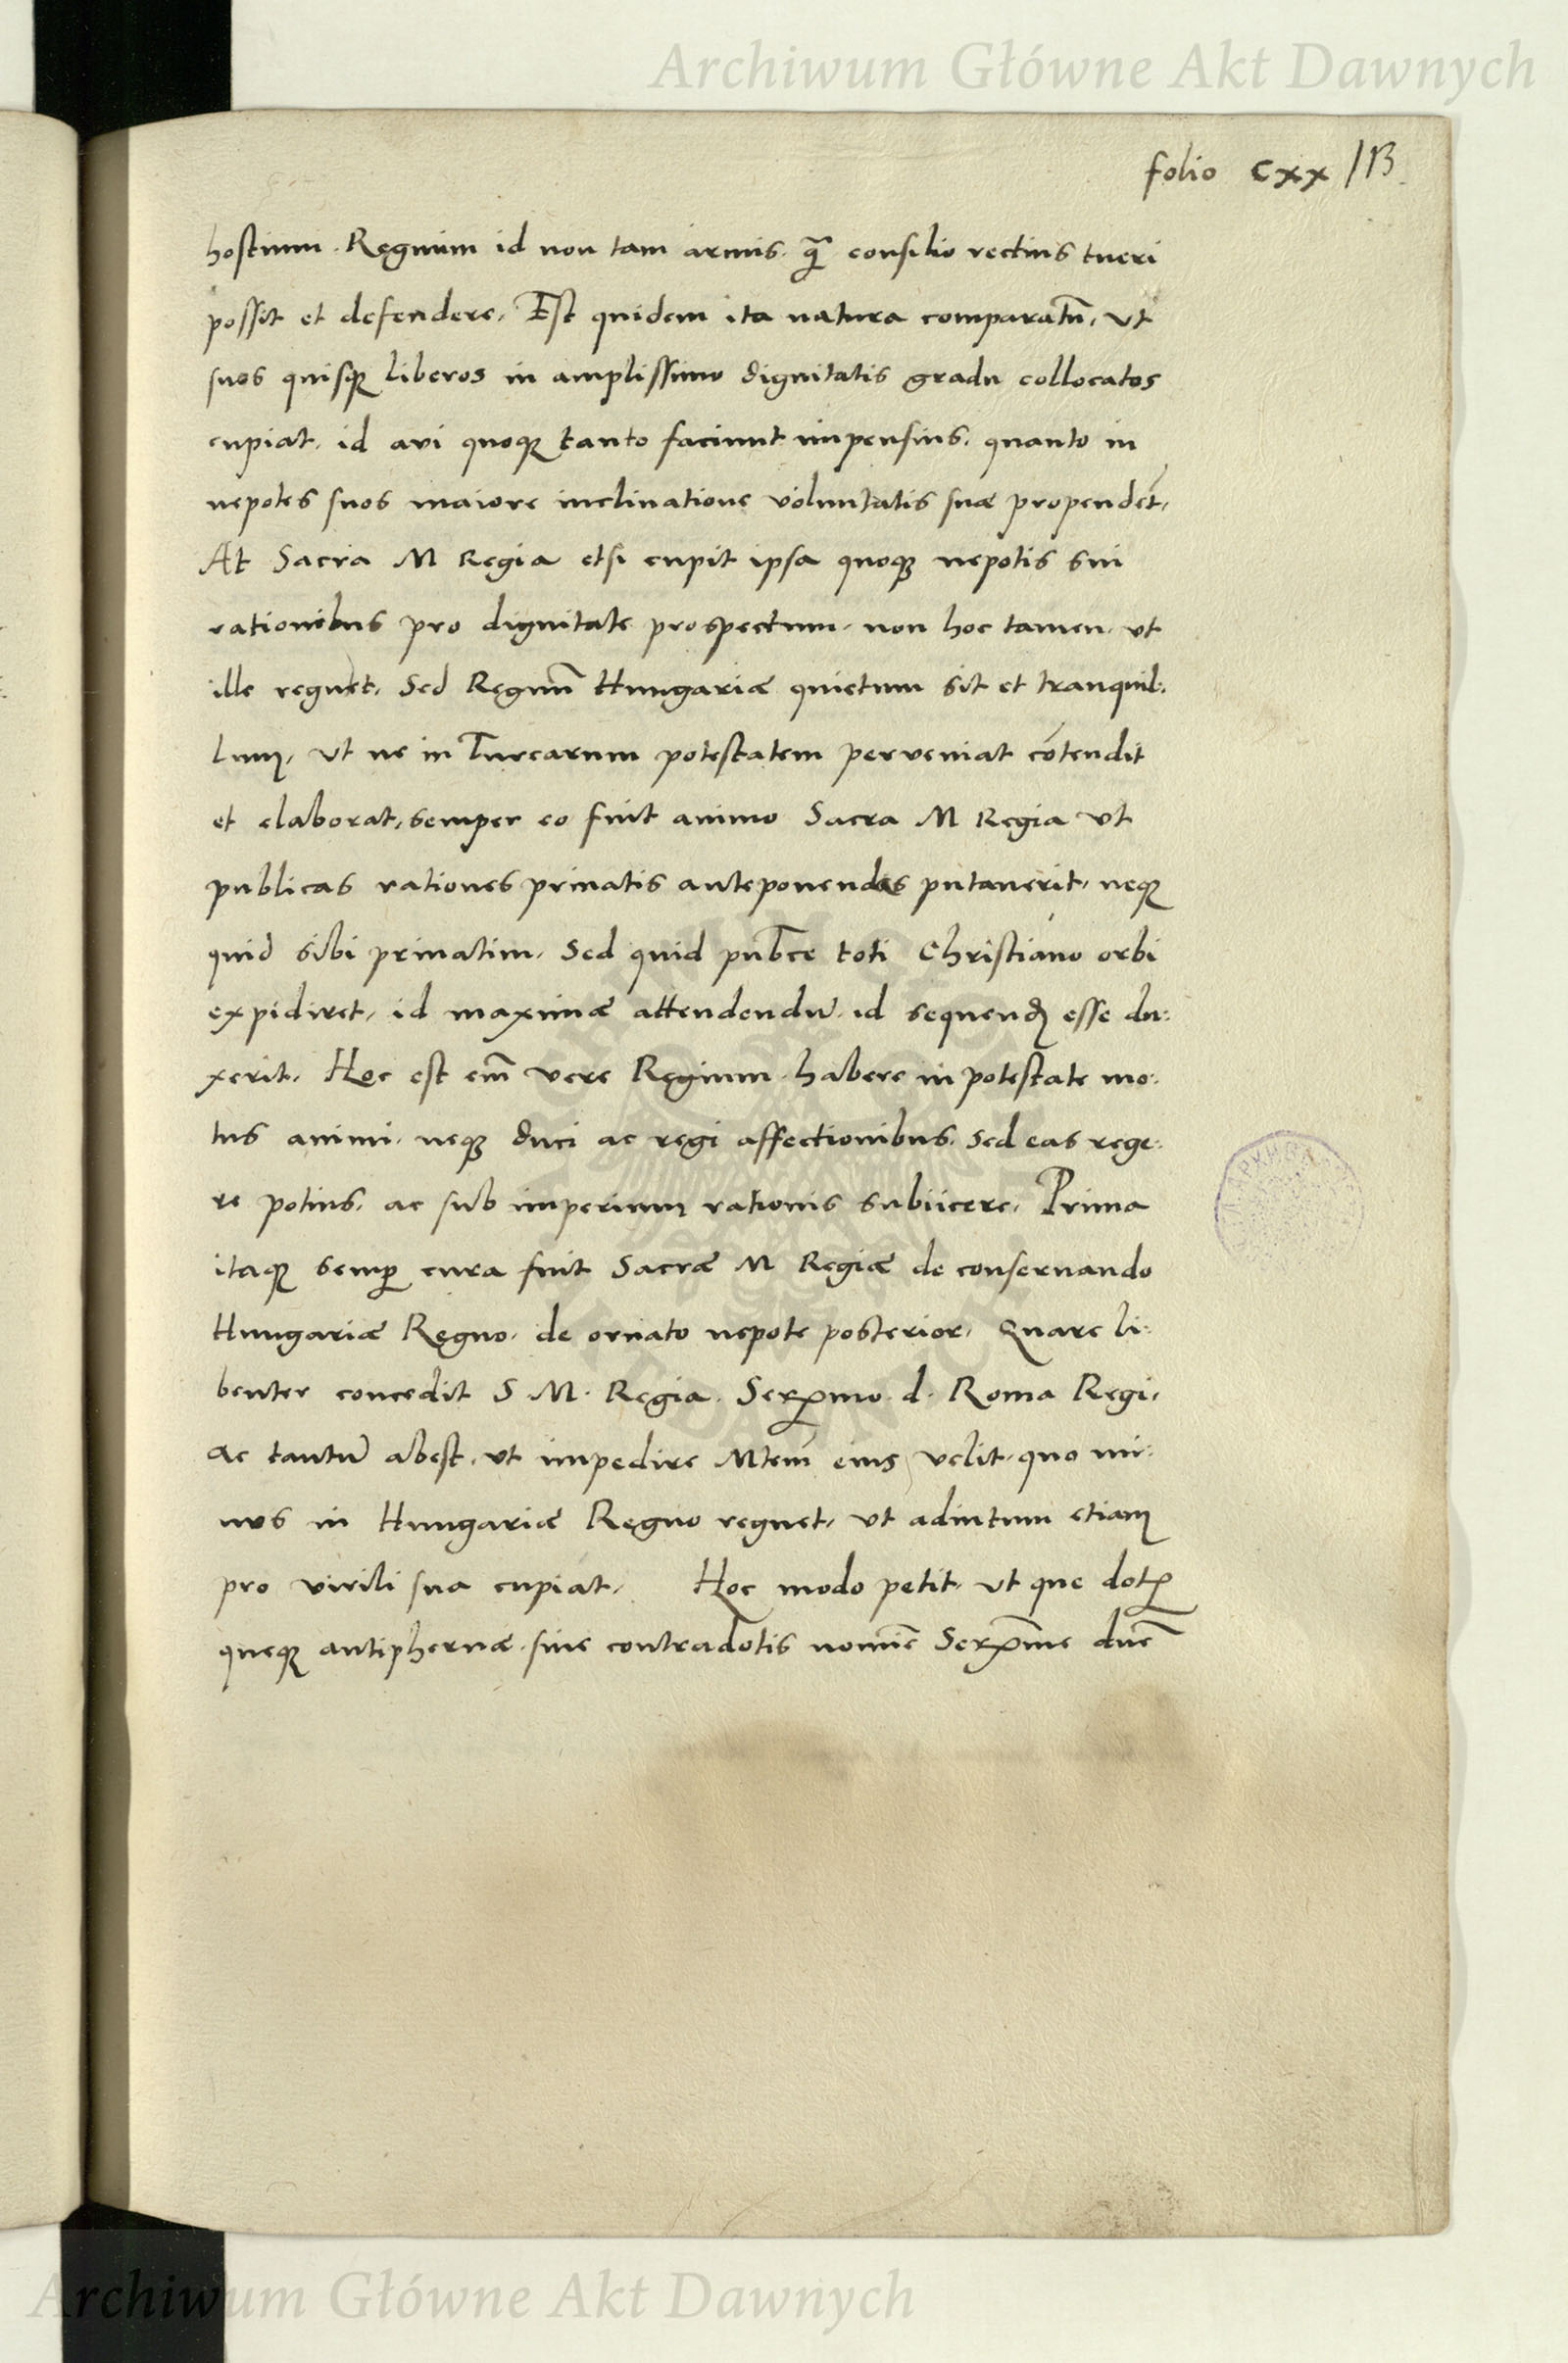 Archiwum Główne Akt Dawnych
folio cxx 113
hostium. Regnum id non tam armis, q̃ consilio rectius tueri
possit et defendere. Est quidem ita natura comparatũ, ut
suos quisq liberos in amplissimo dignitatis gradu collocatos
cupiat, id avi quoq tanto faciunt impensius, quanto in
nepotes suos maiore inclinatione voluntatis suæ propendẽt.
At Sacra M Regia etsi cupit ipsa quoq nepotis sui
rationibus pro dignitate prospectum, non hoc tamen, ut
ille regnet, Sed Regnũ Hungariæ quietum sit et tranquil:
lum, ut ne in Turcarum potestatem perveniat cõtendit
et elaborat, semper eo fuit animo Sacra M Regia ut
publicas rationes privatis anteponendas putaverit, neq
quid sibi privatim, Sed quid publce toti Christiano orbi
expidiret, id maximæ attendendũ, id sequend esse du:
xerit. Hoc est em̃ vere Regium, habere in potestate mo:
tus animi, neq duci ac regi affectionibus, Sed eas rege:
re potius, ac sub imperium rationis subiicere. Prima
itaq semp cura fuit Sacræ M Regiæ de conservando
Hungariæ Regno, de ornato nepote posterior. Quare li:
benter concedit S. M. Regia. Serẽmo d. Roma Regi,
ac tantũ abest, ut impedire Mtem eius velit, quo mi:
nus in Hungariæ Regno regnet, ut adiutum etiam
pro virili sua cupiat. Hoc modo petit, ut que dot
queq antiphernæ, sive contradotis nomĩe Serẽme dnẽ
Archiwum Główne Akt Dawnych